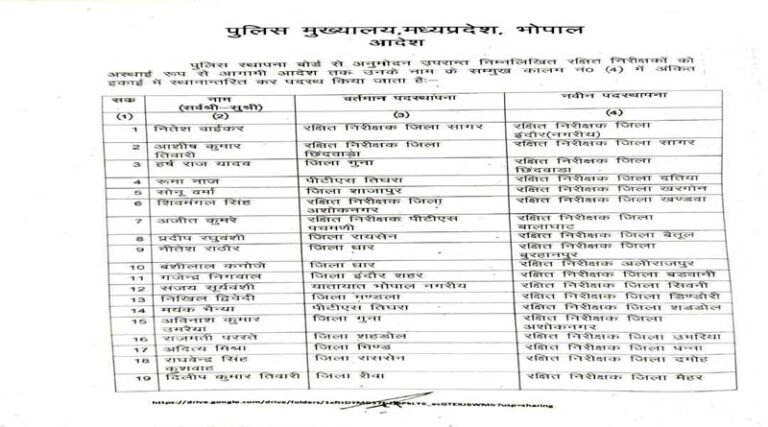 पुलिस मुख्यालय,मध्यप्रदेश, भोपाल
आदेश
पुलिस स्थापना बोर्ड से अनुमोदन उपरान्त निम्नलिखित रक्षित निरीक्षकों को
अस्थाई रूप से आगामी आदेश तक उनके नाम के सम्मुख कालम नं0 (4) में अंकित
इकाई में स्थानान्तरित कर पदस्थ किया जाता है:-
सक नाम (सर्वश्री-सुश्री) वर्तमान पदस्थापना नवीन पदस्थापना
(1) (2) (3) (4)
1 नितेश वाईकर रक्षित निरीक्षक जिला सागर रक्षित निरीक्षक जिला इंदौर(नगरीय)
2 आशीष कुमार तिवारी रक्षित निरीक्षक जिला छिंदवाड़ा रक्षित निरीक्षक जिला सागर
3 हर्ष राज यादव जिला गुना रक्षित निरीक्षक जिला छिंदवाडा
4 रूमा नाज पीटीएस तिघरा रक्षित निरीक्षक जिला दतिया
5 सोनू वर्मा जिला शाजापुर रक्षित निरीक्षक जिला खरगोन
6 शिवमंगल सिंह रक्षित निरीक्षक जिला अशोकनगर रक्षित निरीक्षक जिला खण्डवा
7 अजीत कुमरे रक्षित निरीक्षक पीटीएस पचमणी रक्षित निरीक्षक जिला बालाघाट
8 प्रदीप रघुवंशी जिला रायसेन रक्षित निरीक्षक जिला बैतूल
9 नीतेश राठौर जिला धार रक्षित निरीक्षक जिला बुरहानपुर
10 बशीलाल कनोजे जिला धार रक्षित निरीक्षक अलीराजपुर
11 गजेन्द्र निगवाल जिला इंदौर शहर रक्षित निरीक्षक जिला बडवानी
12 संजय सूर्यवंशी यातायात भोपाल नगरीय रक्षित निरीक्षक जिला सिवनी
13 निखिल द्विवेदी जिला मण्डला रक्षित निरीक्षक जिला डिण्डोरी
14 मयंक पीटीएस तिघरा रक्षित निरीक्षक जिला शडडोल
15 अविनाश कुमार उमरैया जिला गुना रक्षित निरीक्षक जिला अशोकनगर
16 राजमती परस्ते जिला शहडोल रक्षित निरीक्षक जिला उमरिया
17 अदित्य मिश्रा जिला भिण्ड रक्षित निरीक्षक जिला पन्ना
18 राघवेन्द्र सिंह कुशवाह जिला राससेन रक्षित निरीक्षक जिला दमोह
19 दिलीप कुमार तिवारी जिला रीवा रक्षित निरीक्षक जिला मैहर